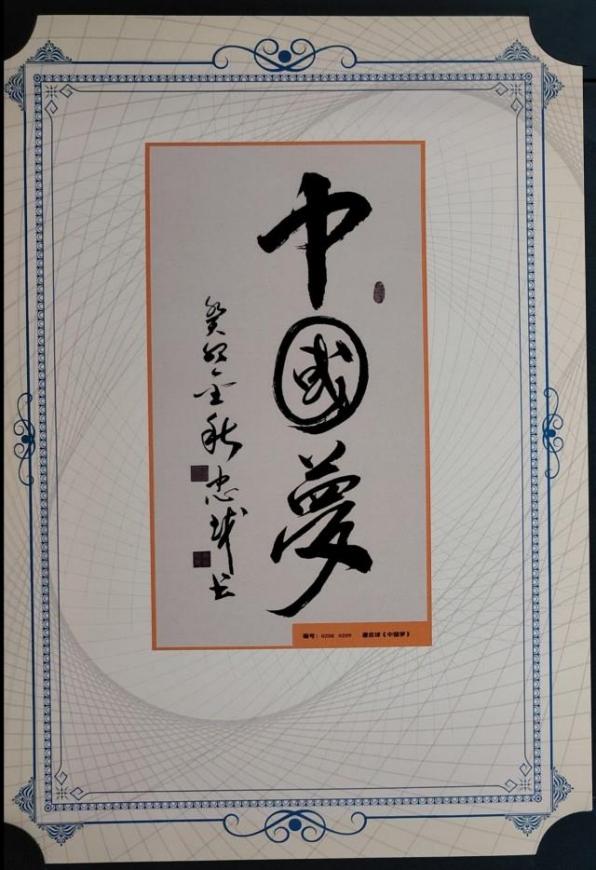 中國夢
癸卯金秋忠球书
编号：0208 0209 《中国梦》